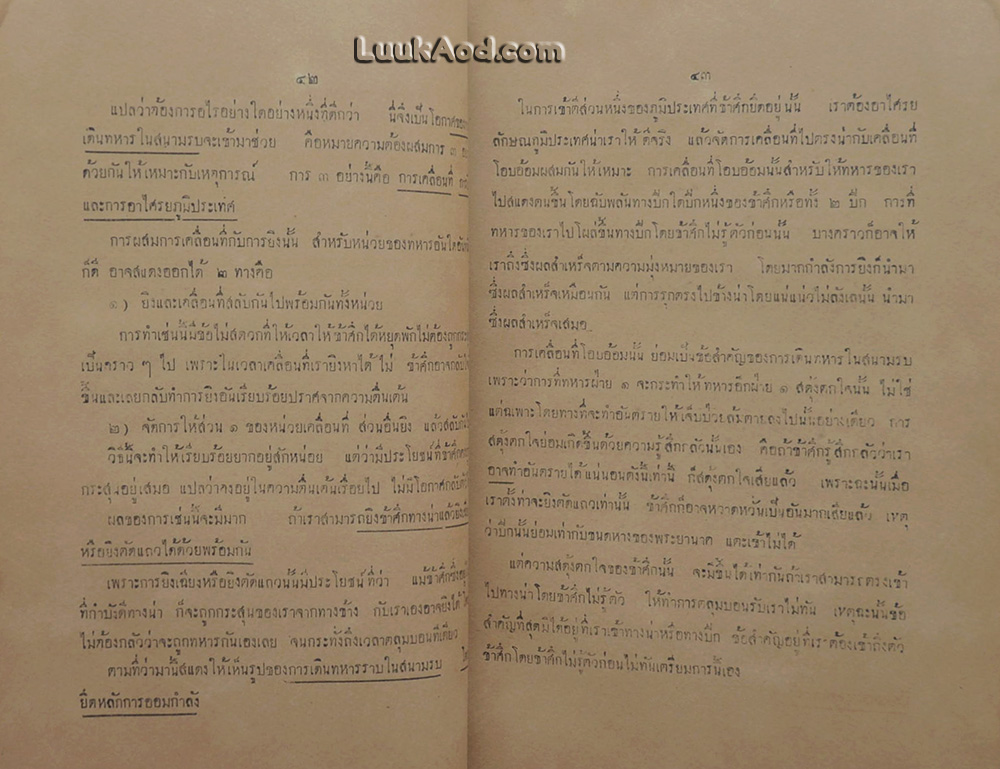 LuukAod.com
๔๒
แปลว่าต้องการอไรอย่างใดอย่างหนึ่งที่ดีกว่า นี่จึงเป็นโอกาศ
เดินทหารในสนามรบจะเข้ามาช่วย คือหมายความต้องผสมการ ๓
ด้วยกันให้เหมาะกับเหตุการณ์ การ ๓ อย่างนั้นคือ การเคลื่อนที่
และการอาไศรยภูมิประเทศ
การผสมการเคลื่อนที่กับการยิงนั้น สำหรับหน่วยของทหารอันใด
ก็ดี อาจสแดงออกได้ ๒ ทางคือ
๑) ยิงและเคลื่อนที่สลับกันไปพร้อมกันทั้งหน่วย
การทำเช่นนี้มีข้อไม่สดวกที่ให้เวลาให้ข้าศึกได้หยุดพักไม่ต้อง
เป็นคราว ๆ ไป เพราะในเวลาเคลื่อนที่เรายิงหาได้ไม่ ข้าศึกอาจ
ขึ้นและเลยกลับทำการยิงอันเรียบร้อยปราศจากความตื่นเต้น
๒) จัดการให้ส่วน ๑ ของหน่วยเคลื่อนที่ ส่วนอื่นยิง แล้ว
วิธีนี้จะทำให้เรียบร้อยยากอยู่สักหน่อย แต่ว่ามีประโยชน์ที่
กระสุนอยู่เสมอ แปลว่าคงอยู่ในความตื่นเต้นเรื่อยไป ไม่มีโอกาศ
ผลของการเช่นนี้จะมีมาก ถ้าเราสามารถยิงข้าศึกทางน่าแล้ว
หรือยิงตัดแถวได้ด้วยพร้อมกัน
เพราะการยิงเฉียงหรือยิงตัดแถวนั้นมีประโยชน์ที่ว่า แม้ข้าศึก
ที่กำบังดีทางน่า ก็จะถูกกระสุนของเราจากทางข้าง กับเราเองอาจยิงได้
ไม่ต้องกลัวว่าจะถูกทหารกันเองเลย จนกระทั่งถึงเวลาตลุมบอนทีเดียว
ตามที่ว่ามานี้สแดงให้เห็นรูปของการเดินทหารราบในสนามรบ
ยึดหลักการออมกำลัง
๔๓
ในการเข้าตีส่วนหนึ่งของภูมิประเทศที่ข้าศึกยึดอยู่นั้น เราต้องอาไศรย
ลักษณภูมิประเทศน่าเราให้ดีจริง แล้วจัดการเคลื่อนที่ไปตรงน่ากับเคลื่อนที่
โอบอ้อมผสมกันให้เหมาะ การเคลื่อนที่โอบอ้อมนั้นสำหรับให้ทหารของเรา
ไปสแดงตนขึ้นโดยฉับพลันทางปีกใดปีกหนึ่งของข้าศึกหรือทั้ง ๒ ปีก การที่
ทหารของเราไปโผล่ขึ้นทางปีกโดยข้าศึกไม่รู้ตัวก่อนนั้น บางคราวก็อาจให้
เราถึงซึ่งผลสำเร็จตามความมุ่งหมายของเรา โดยมากกำลังการยิงก็นำมา
ซึ่งผลสำเร็จเหมือนกัน แต่การรุกตรงไปข้างน่าโดยแน่แน่วไม่ลังเลนั้น นำมา
ซึ่งผลสำเร็จเสมอ
การเคลื่อนที่โอบอ้อมนั้น ย่อมเป็นข้อสำคัญของการเดินทหารในสนามรบ
เพราะว่าการที่ทหารฝ่าย ๑ จะกระทำให้ทหารอีกฝ่าย ๑ สดุ้งตกใจนั้น ไม่ใช่
แต่เฉพาะโดยทางที่จะทำอันตรายให้เจ็บป่วยล้มตายลงไปนั้นอย่างเดียว การ
สดุ้งตกใจย่อมเกิดขึ้นด้วยความรู้สึกกลัวนั้นเอง คือถ้าข้าศึกรู้สึกกลัวว่าเรา
อาจทำอันตรายได้แน่นอนดังนั้นเท่านี้ ก็สดุ้งตกใจเสียแล้ว เพราะฉะนั้นเมื่อ
เราตั้งท่าจะยิงตัดแถวเท่านั้น ข้าศึกก็อาจหวาดหวั่นเป็นอันมากเสียแล้ว เหตุ
ว่าปีกนั้นย่อมเท่ากับขนดหางของพระยานาค แตะเข้าไม่ได้
แต่ความสดุ้งตกใจของข้าศึกนั้น จะมีขึ้นได้เท่ากันถ้าเราสามารถตรงเข้า
ไปทางน่าโดยข้าศึกไม่รู้ตัว ให้ทำการตลุมบอนรับเราไม่ทัน เหตุฉะนั้นข้อ
สำคัญที่สุดมิได้อยู่ที่เราเข้าทางน่าหรือทางปีก ข้อสำคัญอยู่ที่เราต้องเข้าถึงตัว
ข้าศึกโดยข้าศึกไม่รู้ตัวก่อนไม่ทันเตรียมการนี้เอง